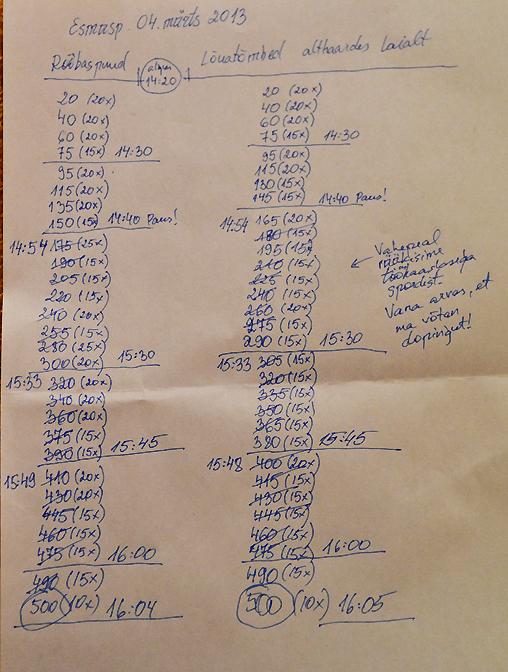 Esmasp. 04. märts 2013
Rööbaspuud
algus 14:20
Lõuatõmbed althaardes laialt
20 (20x)
40 (20x)
60 (20x)
75 (15x) 14:30
95 (20x)
115 (20x)
135 (20x)
150 (15x) 14:40 Paus!
14:54 175 (25x)
190 (15x)
205 (15x)
220 (15x)
240 (20x)
255 (15x)
280 (25x)
300 (20x) 15:30
15:33 320 (20x)
340 (20x)
360 (20x)
375 (15x)
390 (15x) 15:45
15:49 410 (20x)
430 (20x)
445 (15x)
460 (15x)
475 (15x) 16:00
490 (15x)
500 (10x) 16:04
20 (20x)
40 (20x)
60 (20x)
75 (15x) 14:30
95 (20x)
115 (20x)
130 (15x)
145 (15x) 14:40 Paus!
14:54 165 (20x)
180 (15x)
195 (15x)
210 (15x)
225 (15x)
240 (15x)
260 (20x)
275 (15x)
290 (15x) 15:30
15:33 305 (15x)
320 (15x)
335 (15x)
350 (15x)
365 (15x)
380 (15x) 15:45
15:48 400 (20x)
415 (15x)
430 (15x)
445 (15x)
460 (15x)
475 (15x) 16:00
490 (15x)
500 (10x) 16:05
Vahepeal
rääkisime
töökaaslasega
spordist.
Vana arvas, et
ma võtan
dopingut!